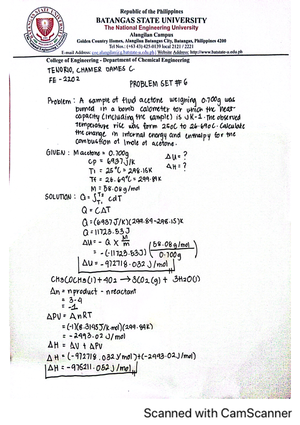 Republic of the Philippines
BATANGAS STATE UNIVERSITY
The National Engineering University
Alangilan Campus
Golden Country Homes, Alangilan Batangas City, Batangas, Philippines 4200
Tel Nos.: (+63 43) 425-0139 local 2121 / 2221
E-mail Address: | Website Address: http://www.batstate-u.edu.ph
College of Engineering - Department of Chemical Engineering
TENORIO, CHAMER DAMES C.
FE - 2202
PROBLEM SET #6
Problem: A sample of fluid acetone weighing 0.700g was
burned in a bomb calorimeter for which the heat
capacity (including the sample) is JK-1. The observed
temperature rise was form 25°C to 26.69°C. Calculate
the change in internal energy and enthalpy for the
combustion of 1mole of acetone.
GIVEN: Macetone = 0.700g ΔU = ?
Cp = 6937J/K ΔH = ?
Ti = 25°C = 298.15K
Tf = 26.69°C = 299.84K
M = 58.08g/mol
SOLUTION: Q = ∫ CdT
Q = CΔT
Q = (6937J/K)(299.84-298.15)K
Q = 11723.53J
ΔU = -Q x M/m
= -(11723.53J) (58.08g/mol / 0.700g)
ΔU = -972718.032 J/mol
CH3COCH3(l) + 4O2 → 3CO2(g) + 3H2O(l)
Δn = nproduct - nreactant
= 3-4
= -1
ΔPV = ΔnRT
= (-1)(8.3145J/K·mol)(299.84K)
= -2493.02 J/mol
ΔH = ΔU + ΔPV
ΔH = (-972718.032 J/mol) + (-2493.02 J/mol)
ΔH = -975211.032 J/mol
Scanned with CamScanner